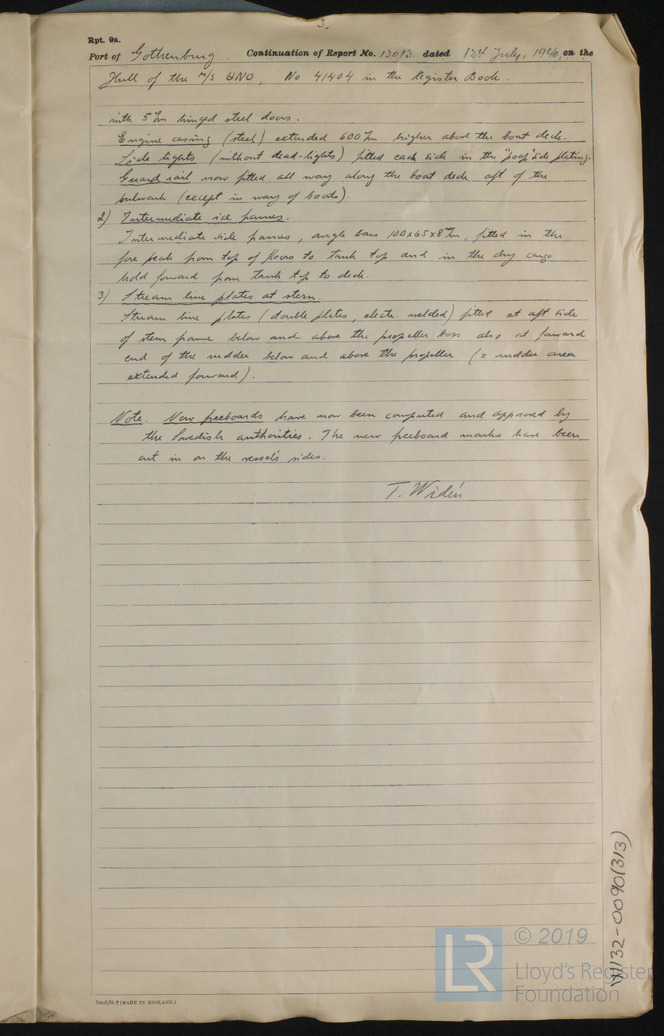 3.
Rpt. 9a.
Port of Gothenburg. Continuation of Report No. 13013 dated 12th July, 1940, on the
Hull of the M/S UNO, No 41404 in the Register Book.
with 5 m/m hinged steel doors.
Engine casing (steel) extended 600 m/m higher above the boat deck.
Side lights (without dead-lights) fitted each side in the "poop" side plating.
Guard rail now fitted all way along the boat deck aft of the
bulwark (except in way of boats).
2) Intermediate side frames.
Intermediate side frames, angle bars 100x65x8 m/m, fitted in the
fore peak from top of floors to tank top and in the dry cargo
hold forward from tank top to deck.
3) Stream line plates at stern.
Stream line plates (double plates, electr. welded) fitted at aft side
of stern frame below and above the propeller boss also at forward
end of the rudder below and above the propeller (= rudder area
extended forward).
Note. New freeboards have now been computed and approved by
the Swedish authorities. The new freeboard marks have been
cut in on the vessel's sides.
T. Widén
(MADE IN ENGLAND.)
W132-0090(3/3)
LR
© 2019
Lloyd's Register
Foundation